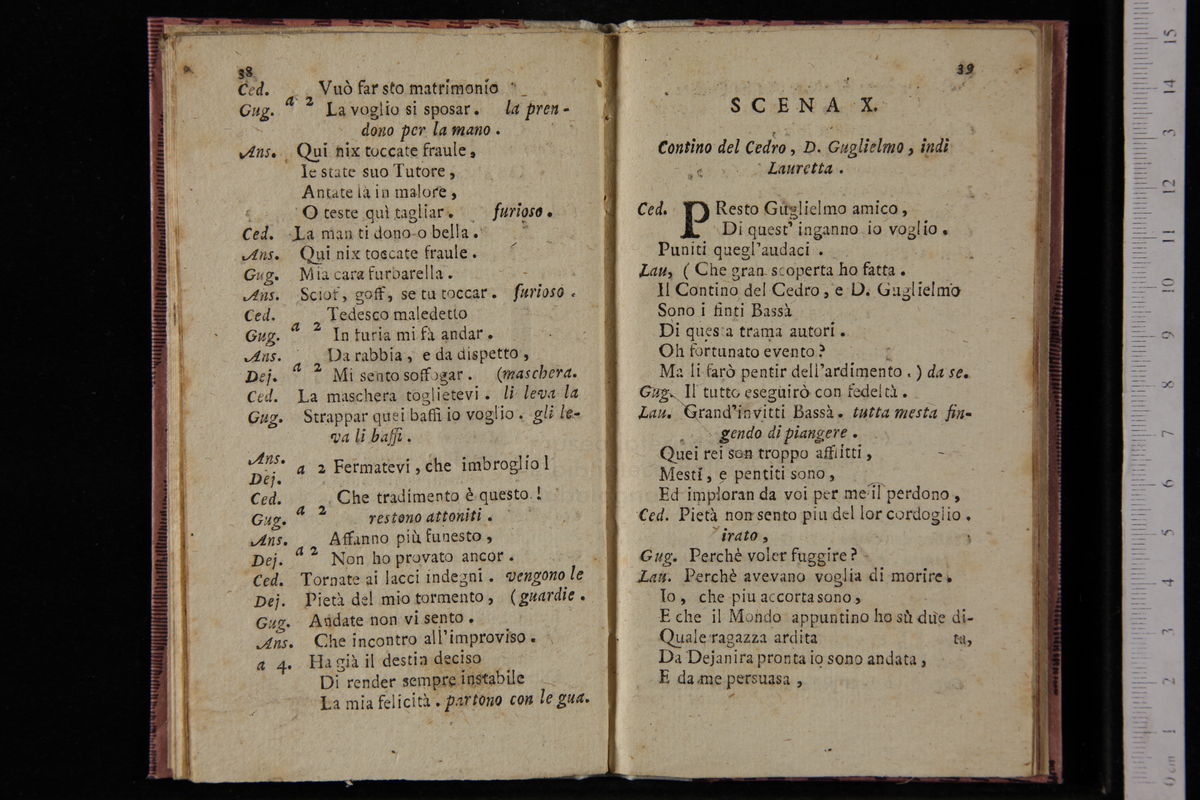 38
Ced. Vuò far sto matrimonio
a 2
Gug. La voglio si sposar. la pren-
dono per la mano.
Ans. Qui nix toccate fraule,
Ie state suo Tutore,
Antate là in malore,
O teste quì tagliar. furioso.
Ced. La man ti dono o bella.
Ans. Qui nix toccate fraule.
Gug. Mia cara furbarella.
Ans. Sciof, goff, se tu toccar. furioso.
Ced. Tedesco maledetto
a 2
Gug. In furia mi fà andar.
Ans. Da rabbia, e da dispetto,
a 2
Dej. Mi sento soffogar. (maschera.
Ced. La maschera toglietevi. li leva la
Gug. Strappar quei baffi io voglio. gli le-
va li baffi.
Ans.
a 2 Fermatevi, che imbroglio!
Dej.
Ced. Che tradimento è questo!
a 2
Gug. restono attoniti.
Ans. Affanno più funesto,
a 2
Dej. Non ho provato ancor.
Ced. Tornate ai lacci indegni. vengono le
Dej. Pietà del mio tormento, (guardie.
Gug. Andate non vi sento.
Ans. Che incontro all'improviso.
a 4. Ha già il destin deciso
Di render sempre instabile
La mia felicità. partono con le gua.
39
SCENA X.
Contino del Cedro, D. Guglielmo, indi
Lauretta.
Ced. PResto Guglielmo amico,
Di quest' inganno io voglio.
Puniti quegl'audaci.
Lau, (Che gran scoperta ho fatta.
Il Contino del Cedro, e D. Guglielmo
Sono i finti Bassà
Di questa trama autori.
Oh fortunato evento?
Ma li farò pentir dell'ardimento.) da se.
Gug. Il tutto eseguirò con fedeltà.
Lau. Grand'invitti Bassà. tutta mesta fin-
gendo di piangere.
Quei rei son troppo afflitti,
Mesti, e pentiti sono,
Ed imploran da voi per me il perdono,
Ced. Pietà non sento piu del lor cordoglio.
irato,
Gug. Perchè voler fuggire?
Lau. Perchè avevano voglia di morire.
Io, che piu accorta sono,
E che il Mondo appuntino ho sù due di-
Quale ragazza ardita ta,
Da Dejanira pronta io sono andata,
E da me persuasa,